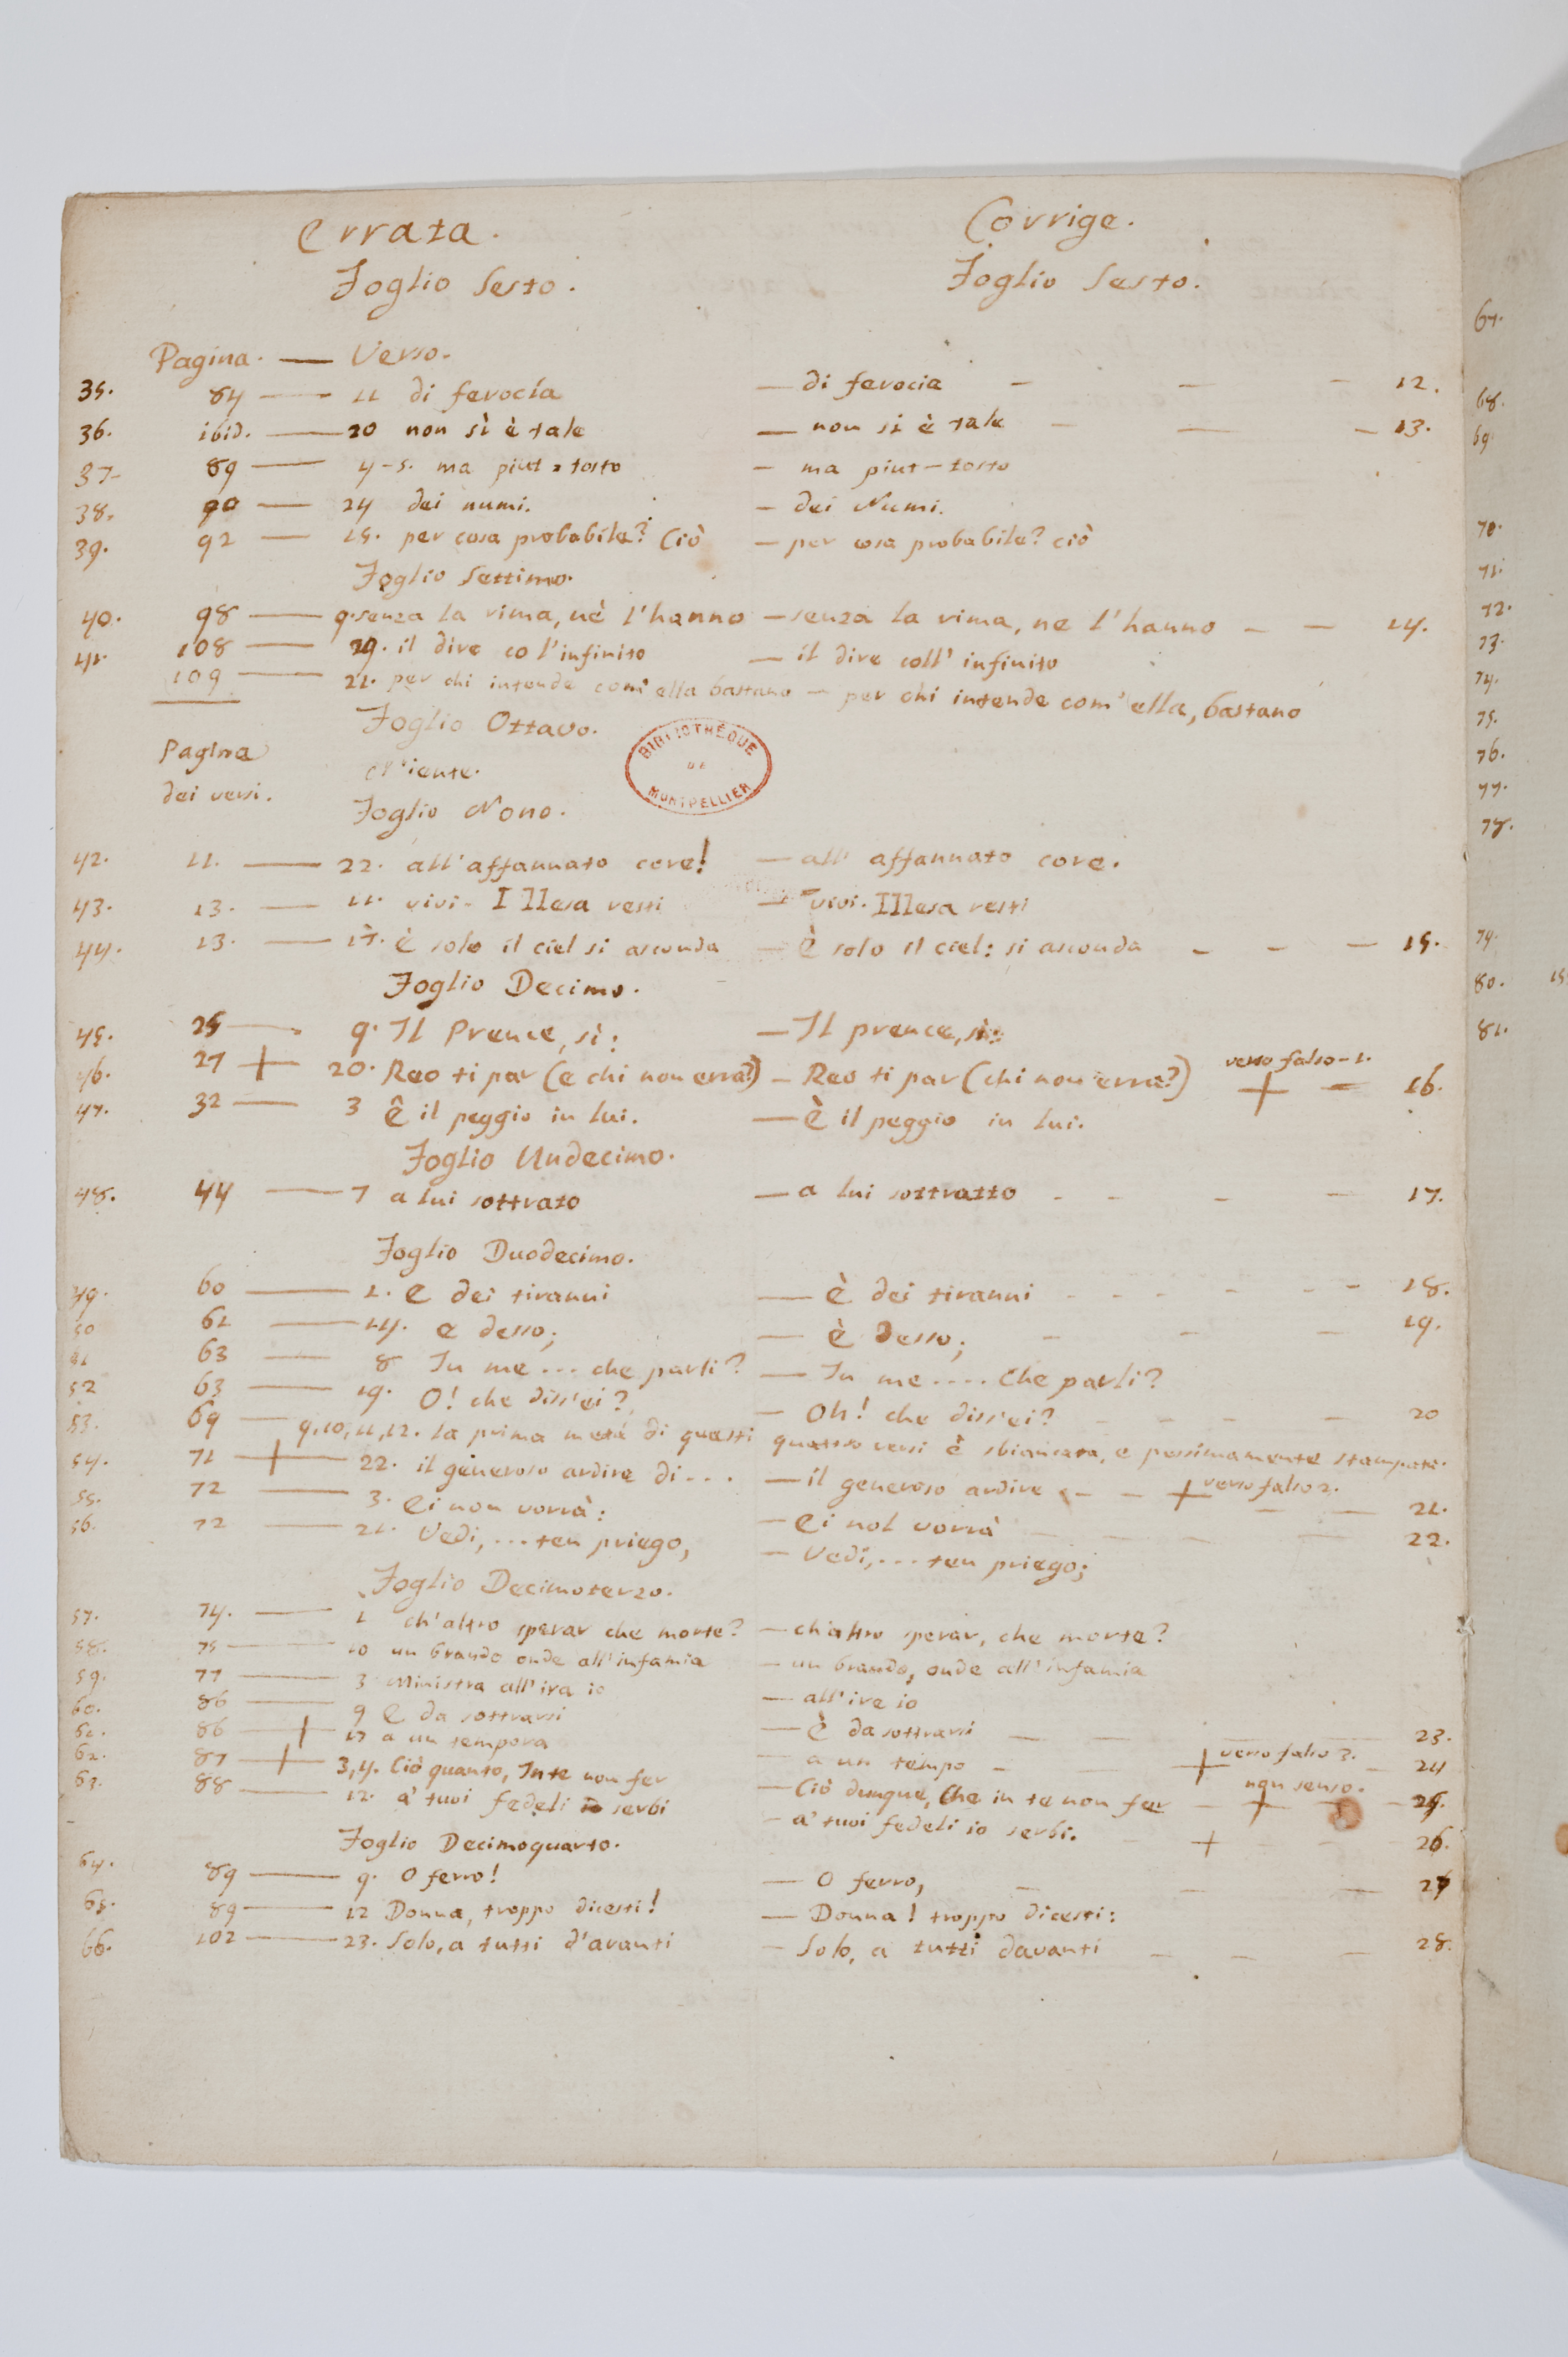 Errata. Corrige.
Foglio Sesto. Foglio Sesto.
Pagina. — Verso.
35. 84 — 11 di ferocía — di ferocia — — — 12.
36. ibid. — 20 non sì è tale — non si è tale — — — 13.
37. 89 — 4-5. ma piut = tosto — ma piut-tosto
38. 90 — 24 dei numi. — dei Numi.
39. 92 — 15. per cosa probabile? Ciò — per cosa probabile? ciò
Foglio Settimo.
40. 98 — 9. senza la rima, nè l'hanno — senza la rima, ne l'hanno — — 14.
41. 108 — 29. il dire co l'infinito — il dire coll' infinito
109 — 21. per chi intende com' ella bastano — per chi intende com' ella, bastano
Foglio Ottavo.
BIBLIOTHÈQUE DE MONTPELLIER
Pagina
dei versi.
Niente.
Foglio Nono.
42. 11. — 22. all'affannato core! — all' affannato core.
43. 13. — 11. vivi. Illesa resti — vivi. Illesa resti
44. 13. — 17. è solo il ciel si asconda — È solo il ciel: si asconda — — — 15.
Foglio Decimo.
45. 25 — 9. Il Prence, sì: — Il prence, sì:
46. 27 + 20. Reo ti par (e chi non erra?) — Reo ti par (chi non erra?) verso falso-1. + — 16.
47. 32 — 3 È il peggio in lui. — È il peggio in lui.
Foglio Undecimo.
48. 44 — 7 a lui sottrato — a lui sottratto — — — — 17.
Foglio Duodecimo.
49. 60 — 1. E dei tiranni — È dei tiranni — — — — 18.
50 61 — 14. e desso; — è desso; — — — 19.
51 63 — 8 In me ... che parli? — In me .... Che parli?
52 63 — 19. O! che diss'ei? — Oh! che diss'ei? — — — — 20
53. 69 — 9, 10, 11, 12. la prima metà di questi quattro versi è sbiancata, e pessimamente stampata.
54. 71 + 22. il generoso ardire di ... — il generoso ardire — — + verso falso 2.
55. 72 — 3. Ei non vorrà: — Ei nol vorrà — — 21.
56. 72 — 21. Vedi, ... ten priego, — Vedi, ... ten priego; — — — 22.
Foglio Decimoterzo.
57. 74. — 1 ch'altro sperar che morte? — ch'altro sperar, che morte?
58. 75 — 10 un brando onde all'infamia — un brando, onde all'infamia
59. 77 — 3 Ministra all'ira io — all'ire io
60. 86 — 9 E da sottrarsi — È da sottrarsi — — — — 23.
61. 86 + 17 a un tempora — a un tempo — — + verso falso 3. — 24
62. 87 + 3, 4. Ciò quanto, In te non fer — Ciò dunque, Che in te non fer — + non senso. — 25.
63. 88 — 12. a' tuoi fedeli io serbi — a' tuoi fedeli io serbi. — + — — 26.
Foglio Decimoquarto.
64. 89 — 9. O ferro! — O ferro, — — — 27
65. 89 — 12 Donna, troppo dicesti! — Donna! troppo dicesti:
66. 102 — 23. Solo, a tutti d'avanti — Solo, a tutti davanti — — — 28.
67.
68.
69
70.
71.
72.
73.
74.
75.
76.
77.
78.
79.
80. 15
81.